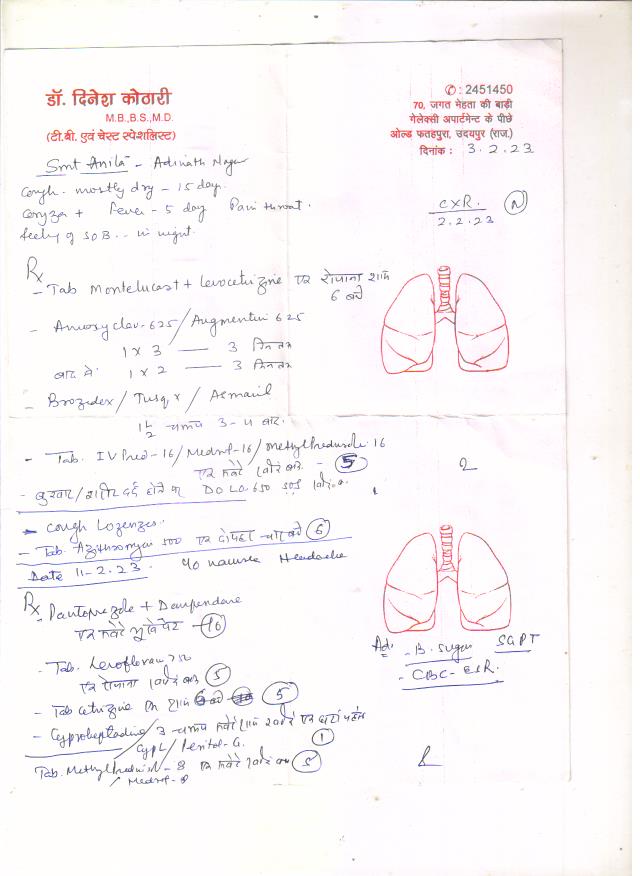 डॉ. दिनेश कोठारी
M.B.,B.S.,M.D.
(टी.बी. एवं चेस्ट स्पेशलिस्ट)
✆ : 2451450
70, जगत मेहता की बाड़ी
गेलेक्सी अपार्टमेन्ट के पीछे
ओल्ड फतहपुरा, उदयपुर (राज.)
दिनांक : 3.2.23
Smt Anila - Adinath Nagar
Cough. mostly dry - 15 day.
Coryza + Fever - 5 day Pain throat.
feeling of SOB.. in night.
CXR. (N)
2.2.23
Rx
- Tab Montelucast + Levocetrizine एक रोजाना शाम
6 बजे
- Amoxyclav-625 / Augmentin 625
1 x 3 — 3 दिन तक
बाद में 1 x 2 — 3 दिन तक
- Brozedex / Tusq x / Asmaril
1 1/2 चम्मच 3-4 बार.
- Tab. IV Pred-16 / Medrol-16 /
16
एक सवेरे - 5
- बुखार / शरीर दर्द होने पर DOLO-650
- Cough Lozenges.
- Tab. Azithromycin 500 एक दोपहर 6
Date 11-2.23. nausea Headache
Rx
एक सवेरे भूखे पेट - 10
- Tab. 750
एक रोजाना 5
- Tab Cetrizine शाम 5
- Cyproheptadine / 3 चम्मच
/ Cypl / 1
Tab. - 8 एक सवेरे 5
/ Medrol - 8
Ad:
- B. Sugar SGPT
- CBC - ESR.